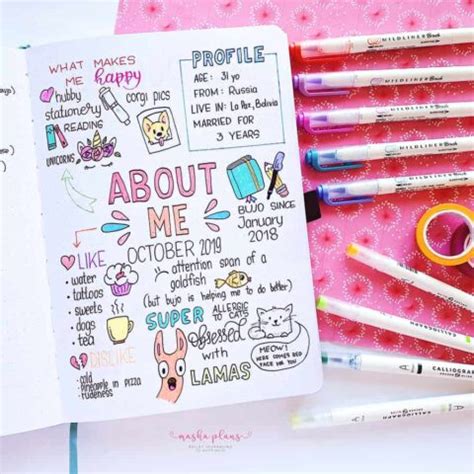 WHAT MAKES
ME happy
hubby
stationery
corgi pics
READING
UNICORNS
PROFILE
AGE: 31 yo
FROM: Russia
LIVE IN: La Paz, Bolivia
MARRIED FOR
3 YEARS
ABOUT
ME
OCTOBER 2019
BUJO SINCE
January
2018
LIKE
• water
• tattoos
• sweets
• dogs
• tea
attention span of a
goldfish
(but bujo is helping me to do better)
SUPER ALLERGIC
TO CATS
MEOW!
HERE COMES RED
FACE FOR YOU
Obsessed
with
LAMAS
DISLIKE
• cold
• pineapple in pizza
• rudeness
masha plans
MILDLINER Brush
MILDLINER Brush
MILDLINER Brush
MILDLINER Brush
MILDLINER Brush
CALLIGRAPH
CALLIGRAPH